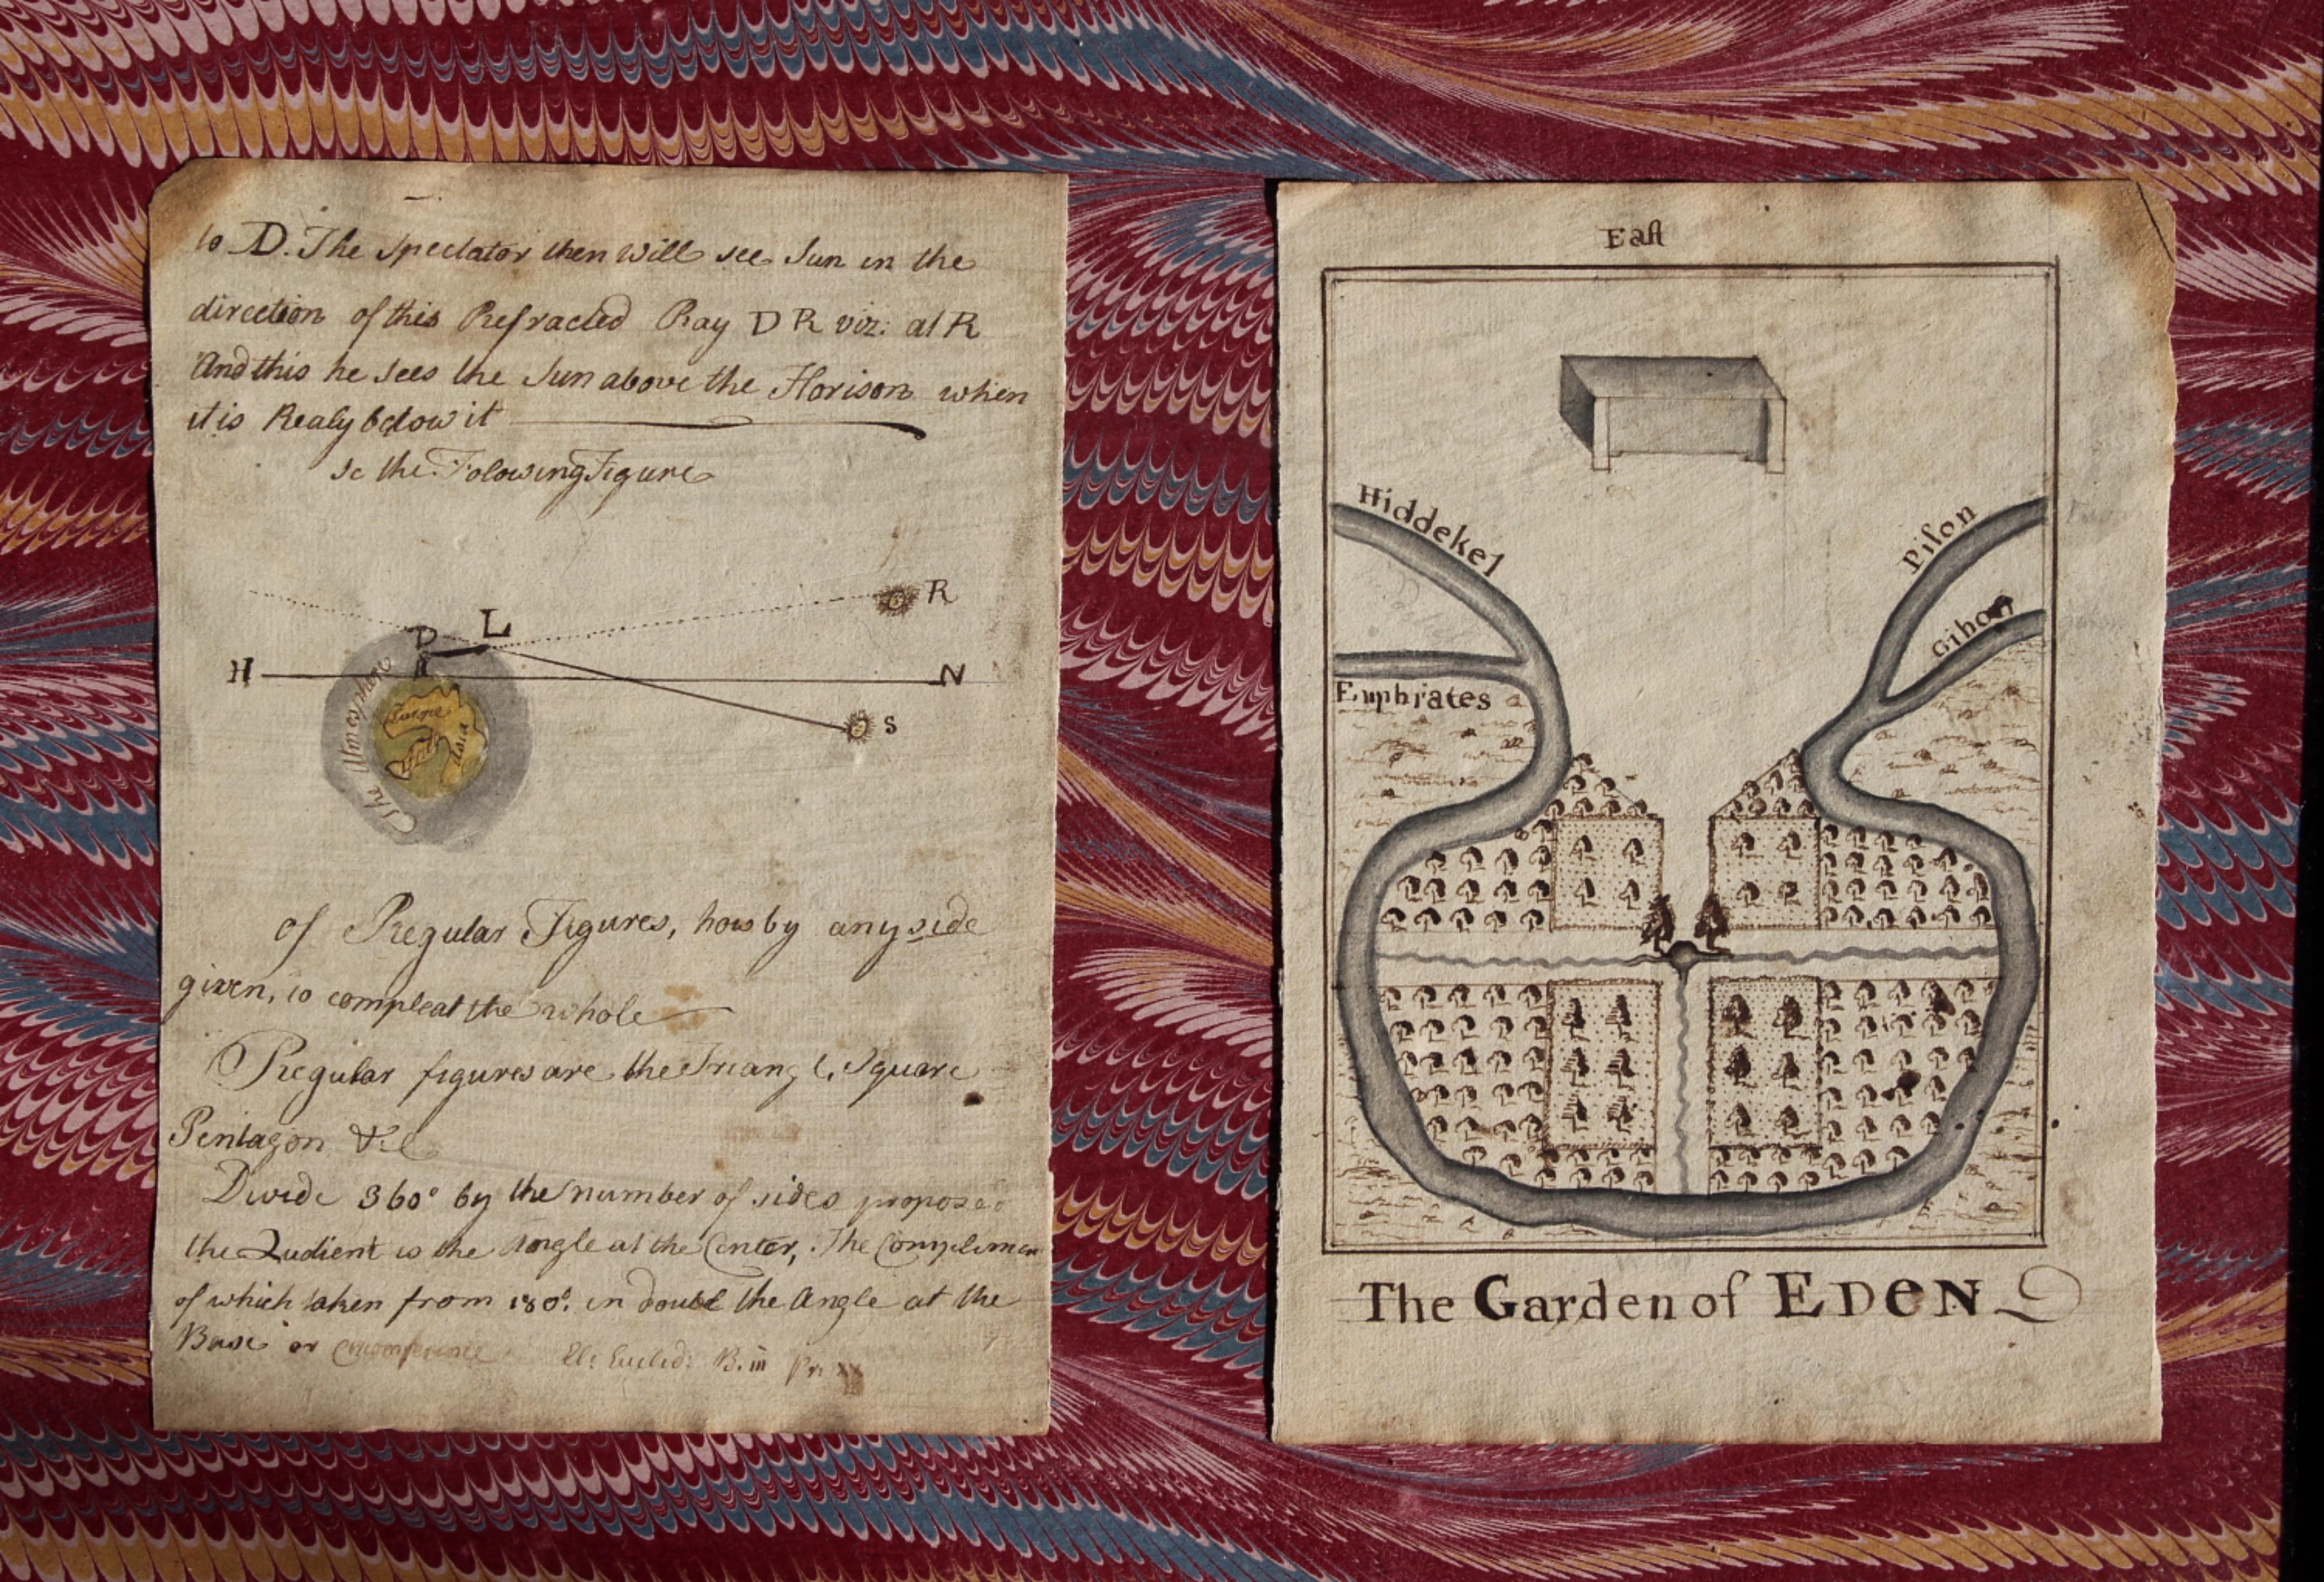 to D. The Spectator then will see Sun in the
direction of this Refracted Ray D R viz: at R
And this he sees the Sun above the Horison when
it is Realy below it
se the Folowing Figure
R
D L
H N
S
The Atmosphere
Europe
Asia
of Regular Figures, how by any side
given, to compleat the whole
Regular figures are the Triangl, Square
Pentagon &c
Divide 360° by the number of sides propose
the Qudient is the Angle at the Center, The Complimen
of which taken from 180°. in doubl the Angle at the
Base or Circomference El: Euclid: B. iii Pr:
Eaſt
Hiddekel
Piſon
Gihon
Euphrates
The Garden of EDeN